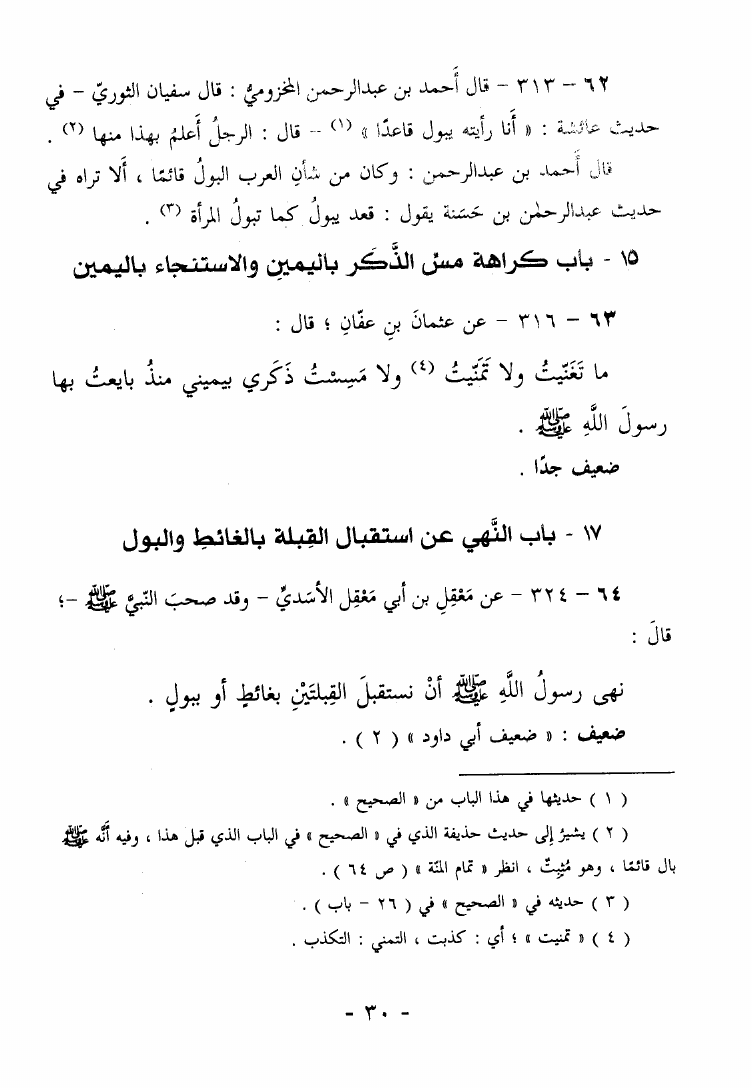 ٦٢ – ٣١٣ – قال أَحمد بن عبدالرحمن المخزوميُّ : قال سفيان الثوريّ – في
حديث عائشة : « أَنا رأيته يبول قاعدًا » (١) – قال : الرجلُ أَعلمُ بهذا منها (٢) .
قال أَحمد بن عبدالرحمن : وكان من شأنِ العرب البولُ قائمًا ، أَلا تراه في
حديث عبدالرحمٰن بن حَسَنة يقول : قعد يبولُ كما تبولُ المرأة (٣) .
١٥ - باب كراهة مسِّ الذَّكَر باليمينِ والاستنجاء باليمين
٦٣ – ٣١٦ – عن عثمانَ بنِ عفّانِ ؛ قال :
ما تَغَنّيتُ ولا تَمَنّيتُ (٤) ولا مَسِسْتُ ذَكَري بيميني منذُ بايعتُ بها
رسولَ اللَّهِ ﷺ .
ضعيف جدًا .
١٧ - باب النَّهي عن استقبال القِبلة بالغائطِ والبول
٦٤ – ٣٢٤ – عن مَعْقِلِ بن أبي مَعْقِل الأسَديِّ – وقد صحبَ النّبيَّ ﷺ –؛
قالَ :
نهى رسولُ اللَّهِ ﷺ أنْ نستقبلَ القِبلتَيْنِ بغائطٍ أو ببولٍ .
ضعيف : « ضعيف أبي داود » ( ٢ ) .
( ١ ) حديثها في هذا الباب من « الصحيح » .
( ٢ ) يشيرُ إلى حديث حذيفة الذي في « الصحيح » في الباب الذي قبل هذا ، وفيه أَنَّه ﷺ
بال قائمًا ، وهو مُثبِتٌ ، انظر « تمام المنّة » ( ص ٦٤ ) .
( ٣ ) حديثه في « الصحيح » في ( ٢٦ – باب ) .
( ٤ ) « تمنيت » ؛ أي : كذبت ، التمني : التكذب .
- ٣٠ -